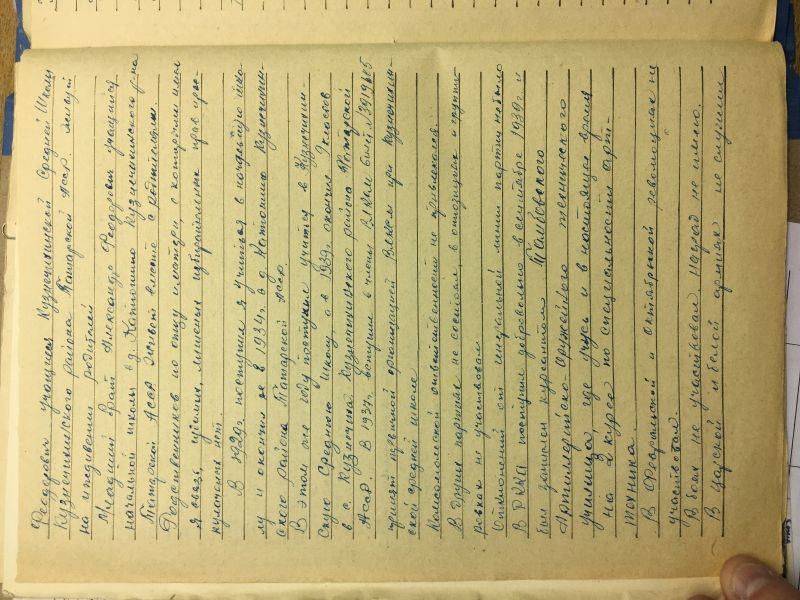 Федорович учащийся Кузнечихинской Средней Школы
Кузнечихинского района Татарской АССР. живут
на иждивении родителей
Младший брат Александр Федорович учащийся
начальной школы в д. Каткошино Кузнечихинского р-на
Татарской АССР живет вместе с родителями.
Родственников по отцу и матери, с которыми имел
я связь, судимых, лишеных избирательных прав рас-
кулаченых нет.
В 1929г. поступил я учиться в начальную шко-
лу и окончил ее в 1934г. в д. Кузнечихин-
ского района Татарской АССР.
В этом же году поступил учиться в Кузнечихин-
скую Среднюю Школу, а в 1939г. окончил 9 классов
в с. Кузнечиха Кузнечихинского района Татарской
АССР. В 1937г. вступил в члены ВЛКСМ билет №3919485
принят первичной организацией ВЛКСМ при Кузнечихин-
ской средней школе
Комсомольской ответственности не привлекался.
В других партиях не состоял, в оппозициях и группи-
ровках не участвовал
Отклонений от генеральной линии партии не было
В РККА поступил добровольно в сентябре 1939г. и
был зачислен курсантом Тамбовского
Артиллерийско-Оружейного технического
училища, где учусь и в настоящее время
на 2 курсе по специальности арт-
техника.
В Февральской и Октябрьской революциях не
участвовал.
В боях не участвовал. Наград не имею.
В царской и белой армиях не служил